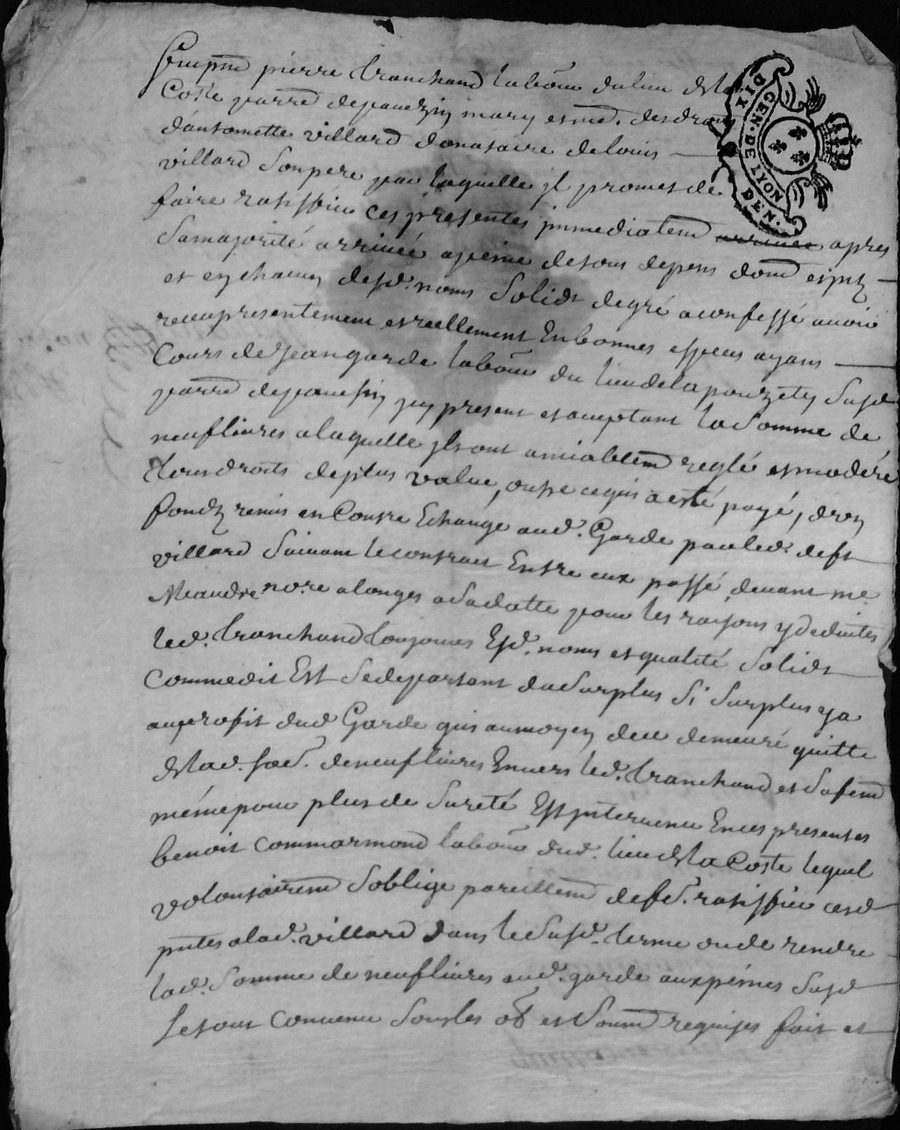 DIX DEN.
GEN. DE LYON
pierre tranchand labou du lieu de la
Coste parre de mary et me. des droits
dantoinette villard donataire de louis
villard son pere par laquelle il promet de
faire ratiffier ces presentes immediatem arrivée apres
sa majorité arrivée a peine de tous depens dom
et en chacun desd. noms solidt de gré a confessé avoir
receu presentement et reellement En bonnes especes ayant
Cours de Jean garde labou du lieu de susd
parre de present et acceptant la somme de
neuf livres a laquelle ils ont amiablem reglé et moderé
tous droits de plus value, outre ce qui a esté payé,
fondz remis en Contre Echange aud. Garde par led. deft
villard suivant le contrait Entre eux passé devant me
Meandre no.re a longes a sa datte pour les raisons y deduites
led. tranchand toujours Esd. noms et qualité solidt
Comme dit Est se departant du surplus si surplus y a
au profit dud Garde qui au moyen de ce demeure quitte
de lad. de neuf livres Envers led. tranchand et sa fem
même pour plus de sureté Est intervenu En ces presentes
benoit commarmond labou dud. lieu de la Coste lequel
volontairem s'oblige pareillem de ratiffier cesd
pntes a lad. villard dans le susd. terme ou de rendre
lad. somme de neuf livres aud. garde aux peines susd
Le tout convenu sous les ob et soum requises fait et